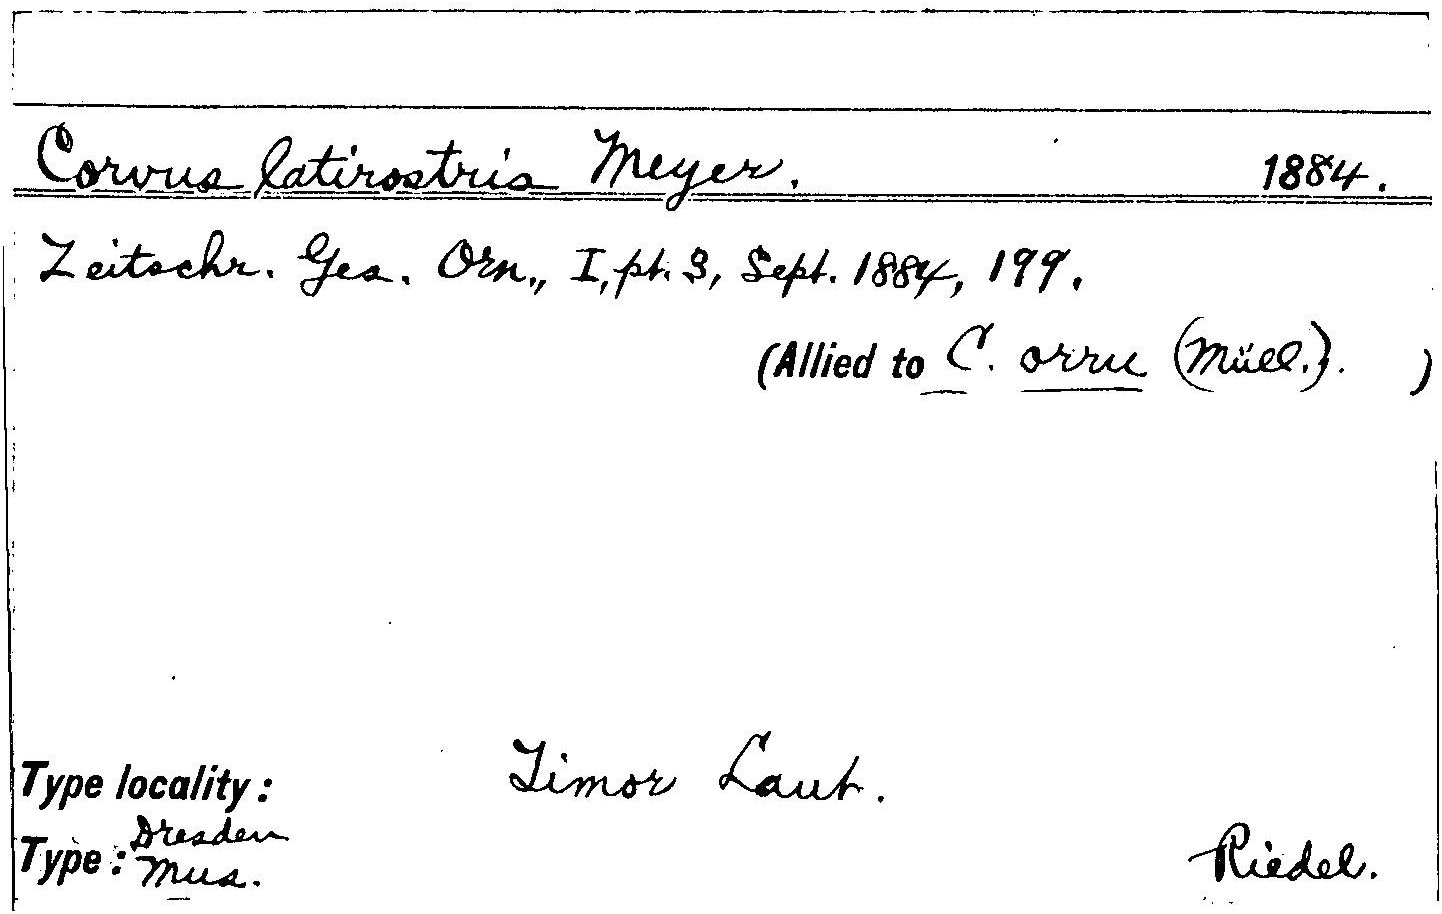 Corvus latirostris Meyer. 1884.
Zeitschr. Ges. Orn., I, pt. 3, Sept. 1884, 199.
(Allied to C. orru (Müll.). )
Type locality: Timor Laut.
Type: Dresden Mus. Riedel.